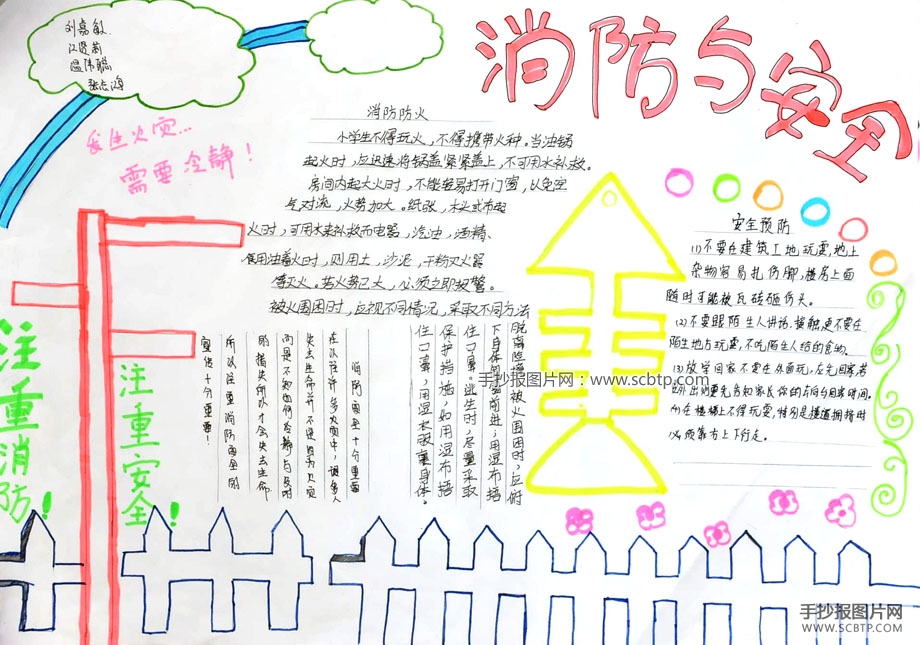 消防与安全
刘嘉敏
张志鸿
发生火灾...
需要冷静！
消防防火
小学生不得玩火，不得携带火种。当油锅
起火时，应迅速将锅盖紧紧盖上，不可用水补救。
房间内起大火时，不能轻易打开门窗，以免空
气对流，火势加大。纸张，木头或布起
火时，可用水来补救而电器，汽油，酒精、
食用油着火时，则用土，沙泥，干粉灭火器
等灭火。若火势已大，必须立即报警。
被火围困时，应视不同情况，采取不同方法
脱离险境被火围困时，应俯
下身体向前进；用湿布捂
住口鼻逃生时，尽量采取
保护措施，如用湿布捂
住口鼻，用湿衣服裹身体。
消防安全十分重要
在以往许多火灾中，许多人
失去生命并不是因为火灾
而是不知如何冷静与及时
所以注重消防安全的
宣传十分重要！
安全预防
(1)不要在建筑工地玩耍，地上
杂物容易扎伤脚，楼房上面
随时可能被瓦砖砸伤头。
(2)不要跟陌生人讲话，接触，更不要在
陌生地方玩耍，不吃陌生人给的食物。
(3)放学回家不要在外面玩，应先回家，若
外出则要先告知家长你的去向与回家时间。
(4)在楼梯上不得玩耍，特别是楼道拥挤时
必须靠右上下行走。
注重消防！
注重安全！
手抄报图片网：www.scbtp.com
手抄报图片网
WWW.SCBTP.COM